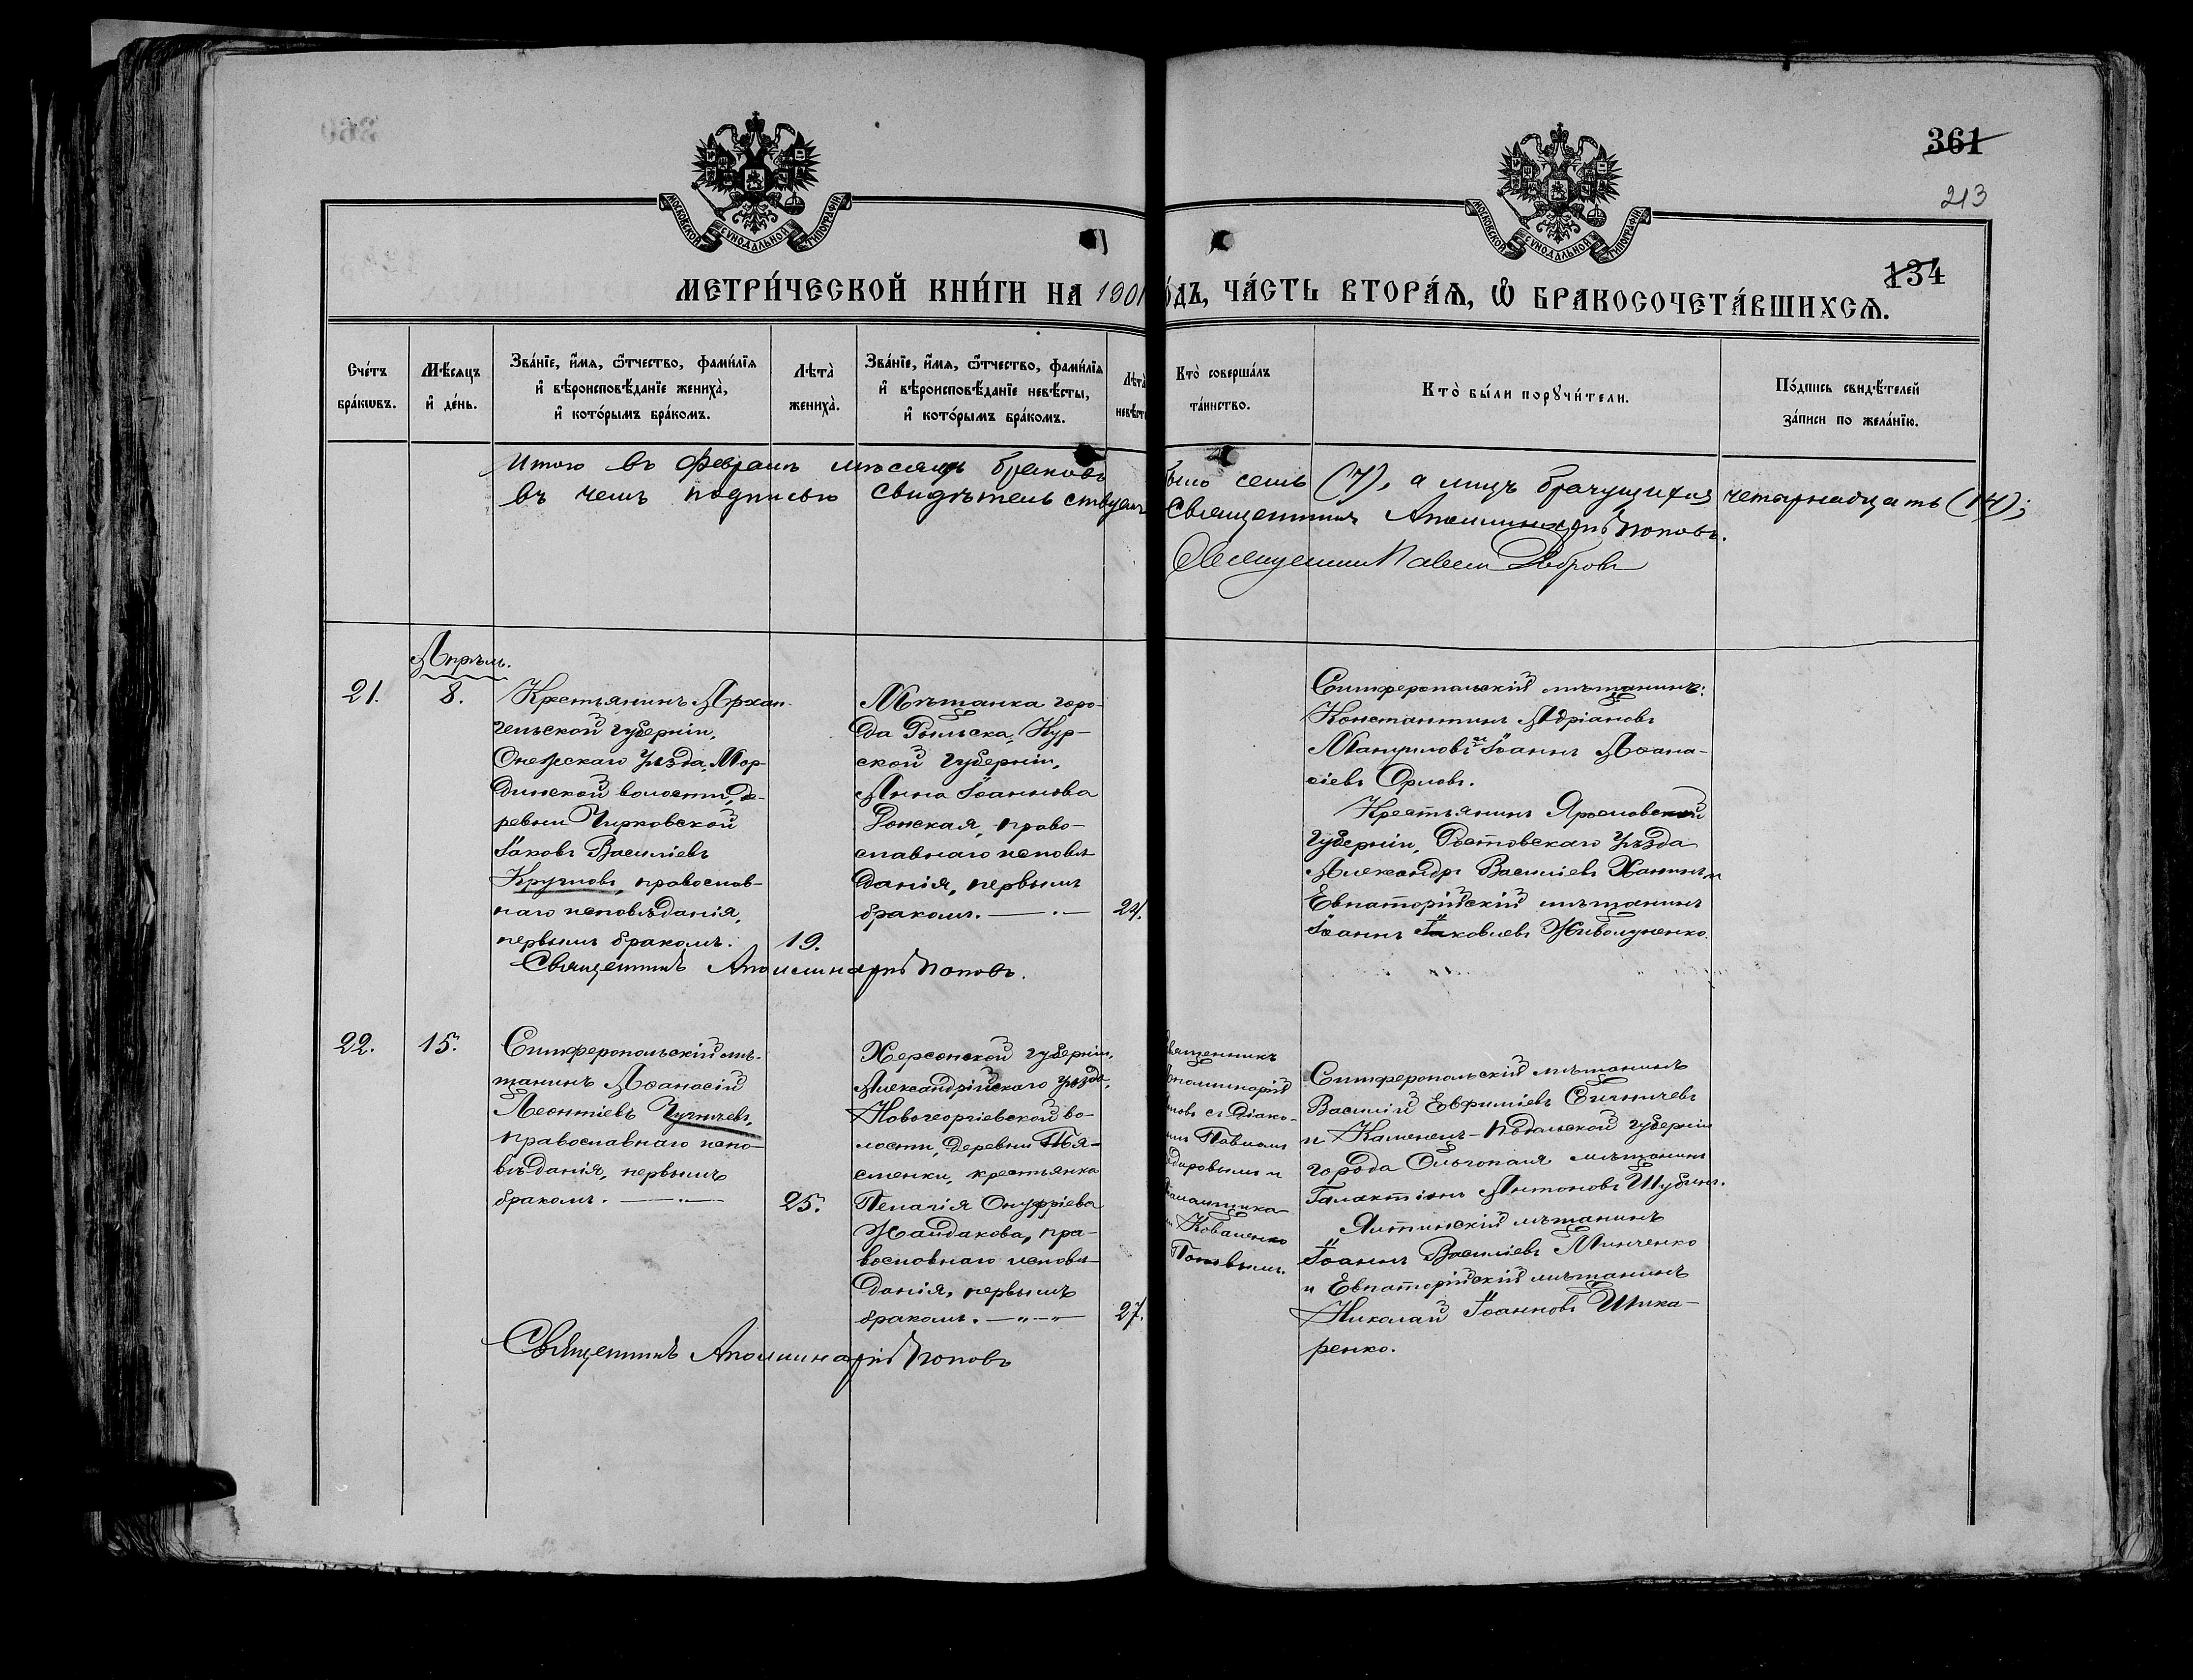 361
213
134
МОСКОВСКОЙ СѴНОДАЛЬНОЙ ТИПОГРАФІИ
МОСКОВСКОЙ СѴНОДАЛЬНОЙ ТИПОГРАФІИ
МЕТРИ́ЧЕСКОЙ КНИ́ГИ НА 1901 О́ДЪ, ЧА́СТЬ ВТОРА́Ѧ, Ѽ БРАКОСОЧЕТА́ВШИХСѦ.
Сче́тъ
бра́кѡвъ.
Мѣ́сяцъ
и҆ де́нь.
Зва́нїе, и҆́мѧ, ѻ҆́тчество, фами́лїѧ
и҆ вѣроисповѣ́данїе жениха̀,
и҆ кото́рымъ бра́комъ.
Лѣта̀
жениха̀.
Зва́нїе, и҆́мѧ, ѻ҆́тчество, фами́лїѧ
и҆ вѣроисповѣ́данїе невѣ́сты,
и҆ кото́рымъ бра́комъ.
Лѣта̀
невѣст
Кто̀ соверша́лъ
та́инство.
Кто̀ бы́ли порꙋчи́тели.
По́дпись свидѣ́телей
за́писи по жела́нїю.
Итого въ Февралѣ мѣсяцѣ браковъ было семь (7), а лицъ брачущихся четырнадцать (14);
въ чемъ подписью свидѣтельствуемъ Священникъ Аполлинарій Поповъ.
Павелъ
Апрѣль.
21.
8.
Крестьянинъ Архан-
гельской губерніи,
Онежскаго уѣзда, Мор-
динской волости, де-
ревни Чирковской
Іаковъ Василіевъ
Кругловъ, православ-
наго исповѣданія,
первымъ бракомъ.
19.
Мѣщанка горо-
да Рыльска, Кур-
ской губерніи,
Анна Іоаннова
Донская, право-
славнаго исповѣ-
данія, первымъ
бракомъ.
24.
Симферопольскій мѣщанинъ:
Константинъ Адріановъ
Мануиловъ и Іоаннъ Аѳана-
сіевъ Орловъ.
Крестьянинъ Ярославской
губерніи, Ростовскаго уѣзда
Александръ Василіевъ Ханинъ и
Евпаторійскій мѣщанинъ
Іоаннъ Іаковлевъ
Священникъ Аполлинарій Поповъ.
22.
15.
Симферопольскій мѣ-
щанинъ Аѳанасій
Леонтіевъ
православнаго испо-
вѣданія, первымъ
бракомъ.
25.
Херсонской губерніи,
Александрійскаго уѣзда,
Новогеоргіевской во-
лости, деревни Тя-
сменки, крестьянка
Пелагія Онуфріева
Жайдакова, пра-
вославнаго исповѣ-
данія, первымъ
бракомъ.
27.
вященникъ
Аполлинарій
повъ съ діако-
номъ Павломъ
и
псаломщика
Коваленко
Поповымъ.
Симферопольскій мѣщанинъ
Василій Евфиміевъ
и Каменецъ-Подольской губерніи
города Ольгополя мѣщанинъ
Галактіонъ Антоновъ Шубинъ.
Ялтинскій мѣщанинъ
Іоаннъ Василіевъ Минченко
и Евпаторійскій мѣщанинъ
Николай Іоанновъ Шкка-
ренко.
Священникъ Аполлинарій Поповъ